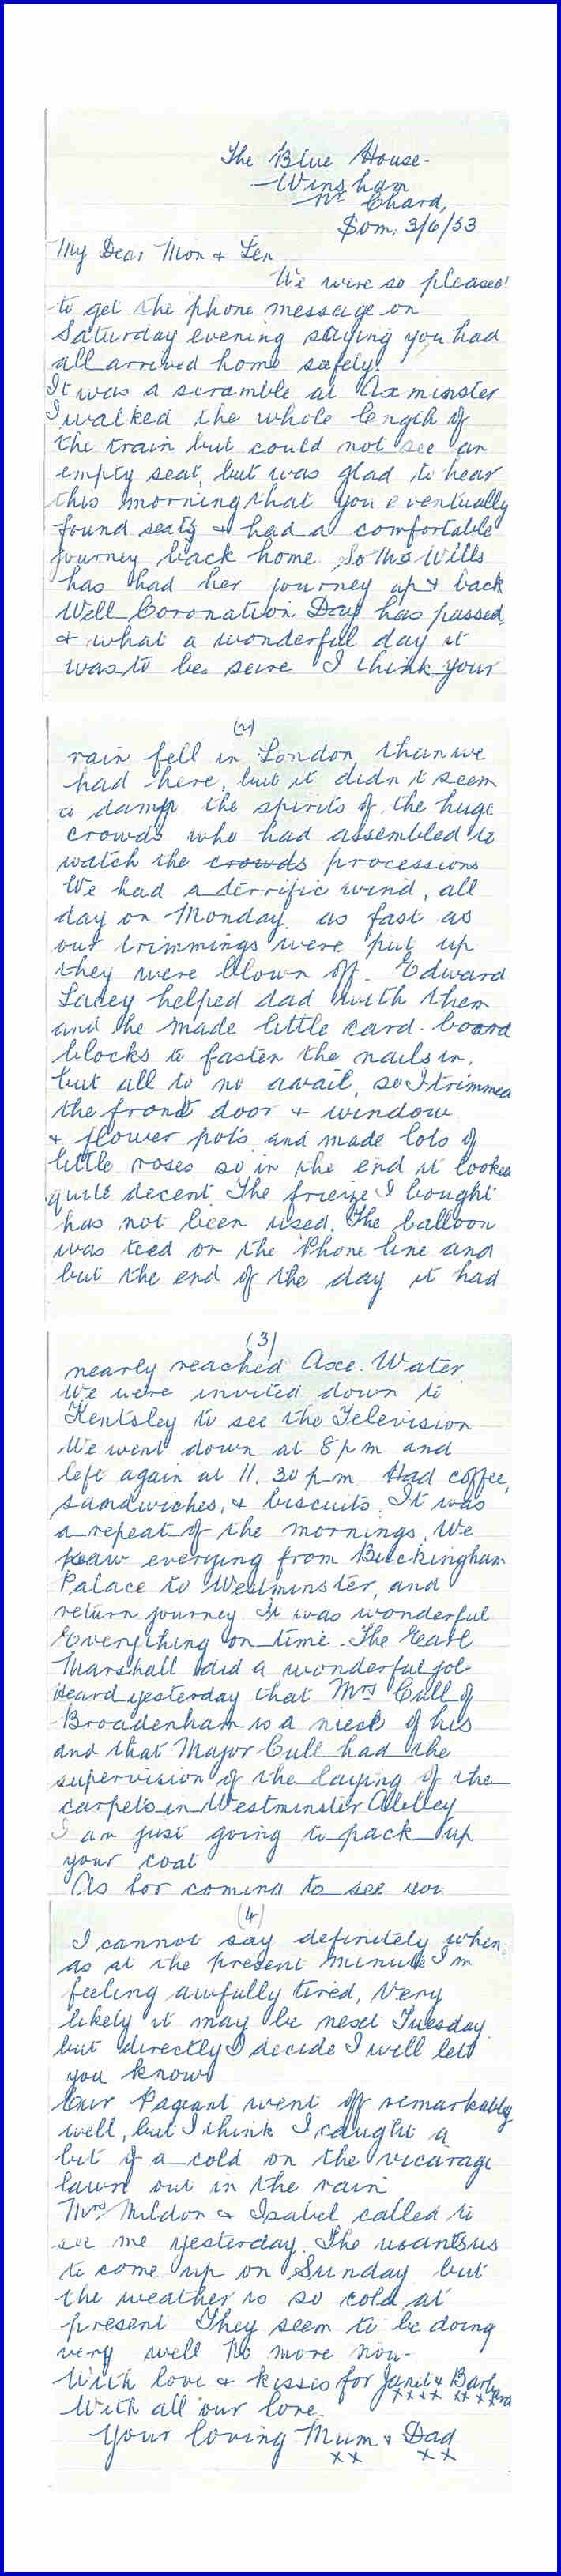 The Blue House.
Winsham
Nr Chard,
Som. 3/6/53
My Dear Mon & Len
We were so pleased
to get the phone message on
Saturday evening saying you had
all arrived home safely.
It was a scramble at Axminster
I walked the whole length of
the train but could not see an
empty seat, but was glad to hear
this morning that you eventually
found seats & had a comfortable
journey back home. So Mrs Wills
has had her journey up & back
Well Coronation Day has passed,
& what a wonderful day it
was to be sure I think your
(2)
rain fell in London than we
had here, but it didn't seem
to damp the spirits of the huge
crowds who had assembled to
watch the crowds processions
We had a terrific wind, all
day on Monday. as fast as
our trimmings were put up
they were blown off. Edward
Lacey helped dad with them
and he made little card. board
blocks to fasten the nails in,
but all to no avail, so I trimmed
the front door & window
& flower pots and made lots of
little roses so in the end it looked
quite decent The frieize I bought
has not been used. The balloon
was teed on the Phone line and
but the end of the day it had
(3)
nearly reached Axe. Water
We were invited down to
Kentsley to see the Television
We went down at 8 p m and
left again at 11. 30 p m Had coffee,
sandwiches, & biscuits. It was
a repeat of the mornings. We
saw everying from Buckingham
Palace to Westminster, and
return journey It was wonderful
Everything on time. The Earl
Marshall did a wonderful job
Heard yesterday that Mrs Cull of
Broadenham is a niece of his
and that Major Cull had the
supervision of the laying of the
carpets in Westminster Abbey
I am just going to pack up
your coat
As for coming to see you
(4)
I cannot say definitely when.
as at the present minute I'm
feeling awfully tired, Very
likely it may be next Tuesday.
but directly I decide I will let
you know
Our Pageant went off remarkably
well, but I think I caught a
bit of a cold on the vicarage
lawn out in the rain
Mrs Mildon & Isabel called to
see me yesterday. She wants us
to come up on Sunday but
the weather is so cold at
present They seem to be doing
very well No more now.
With love & kisses for Janet & Barbara
xxxx xxxx
With all our love.
Your loving Mum & Dad
xx xx